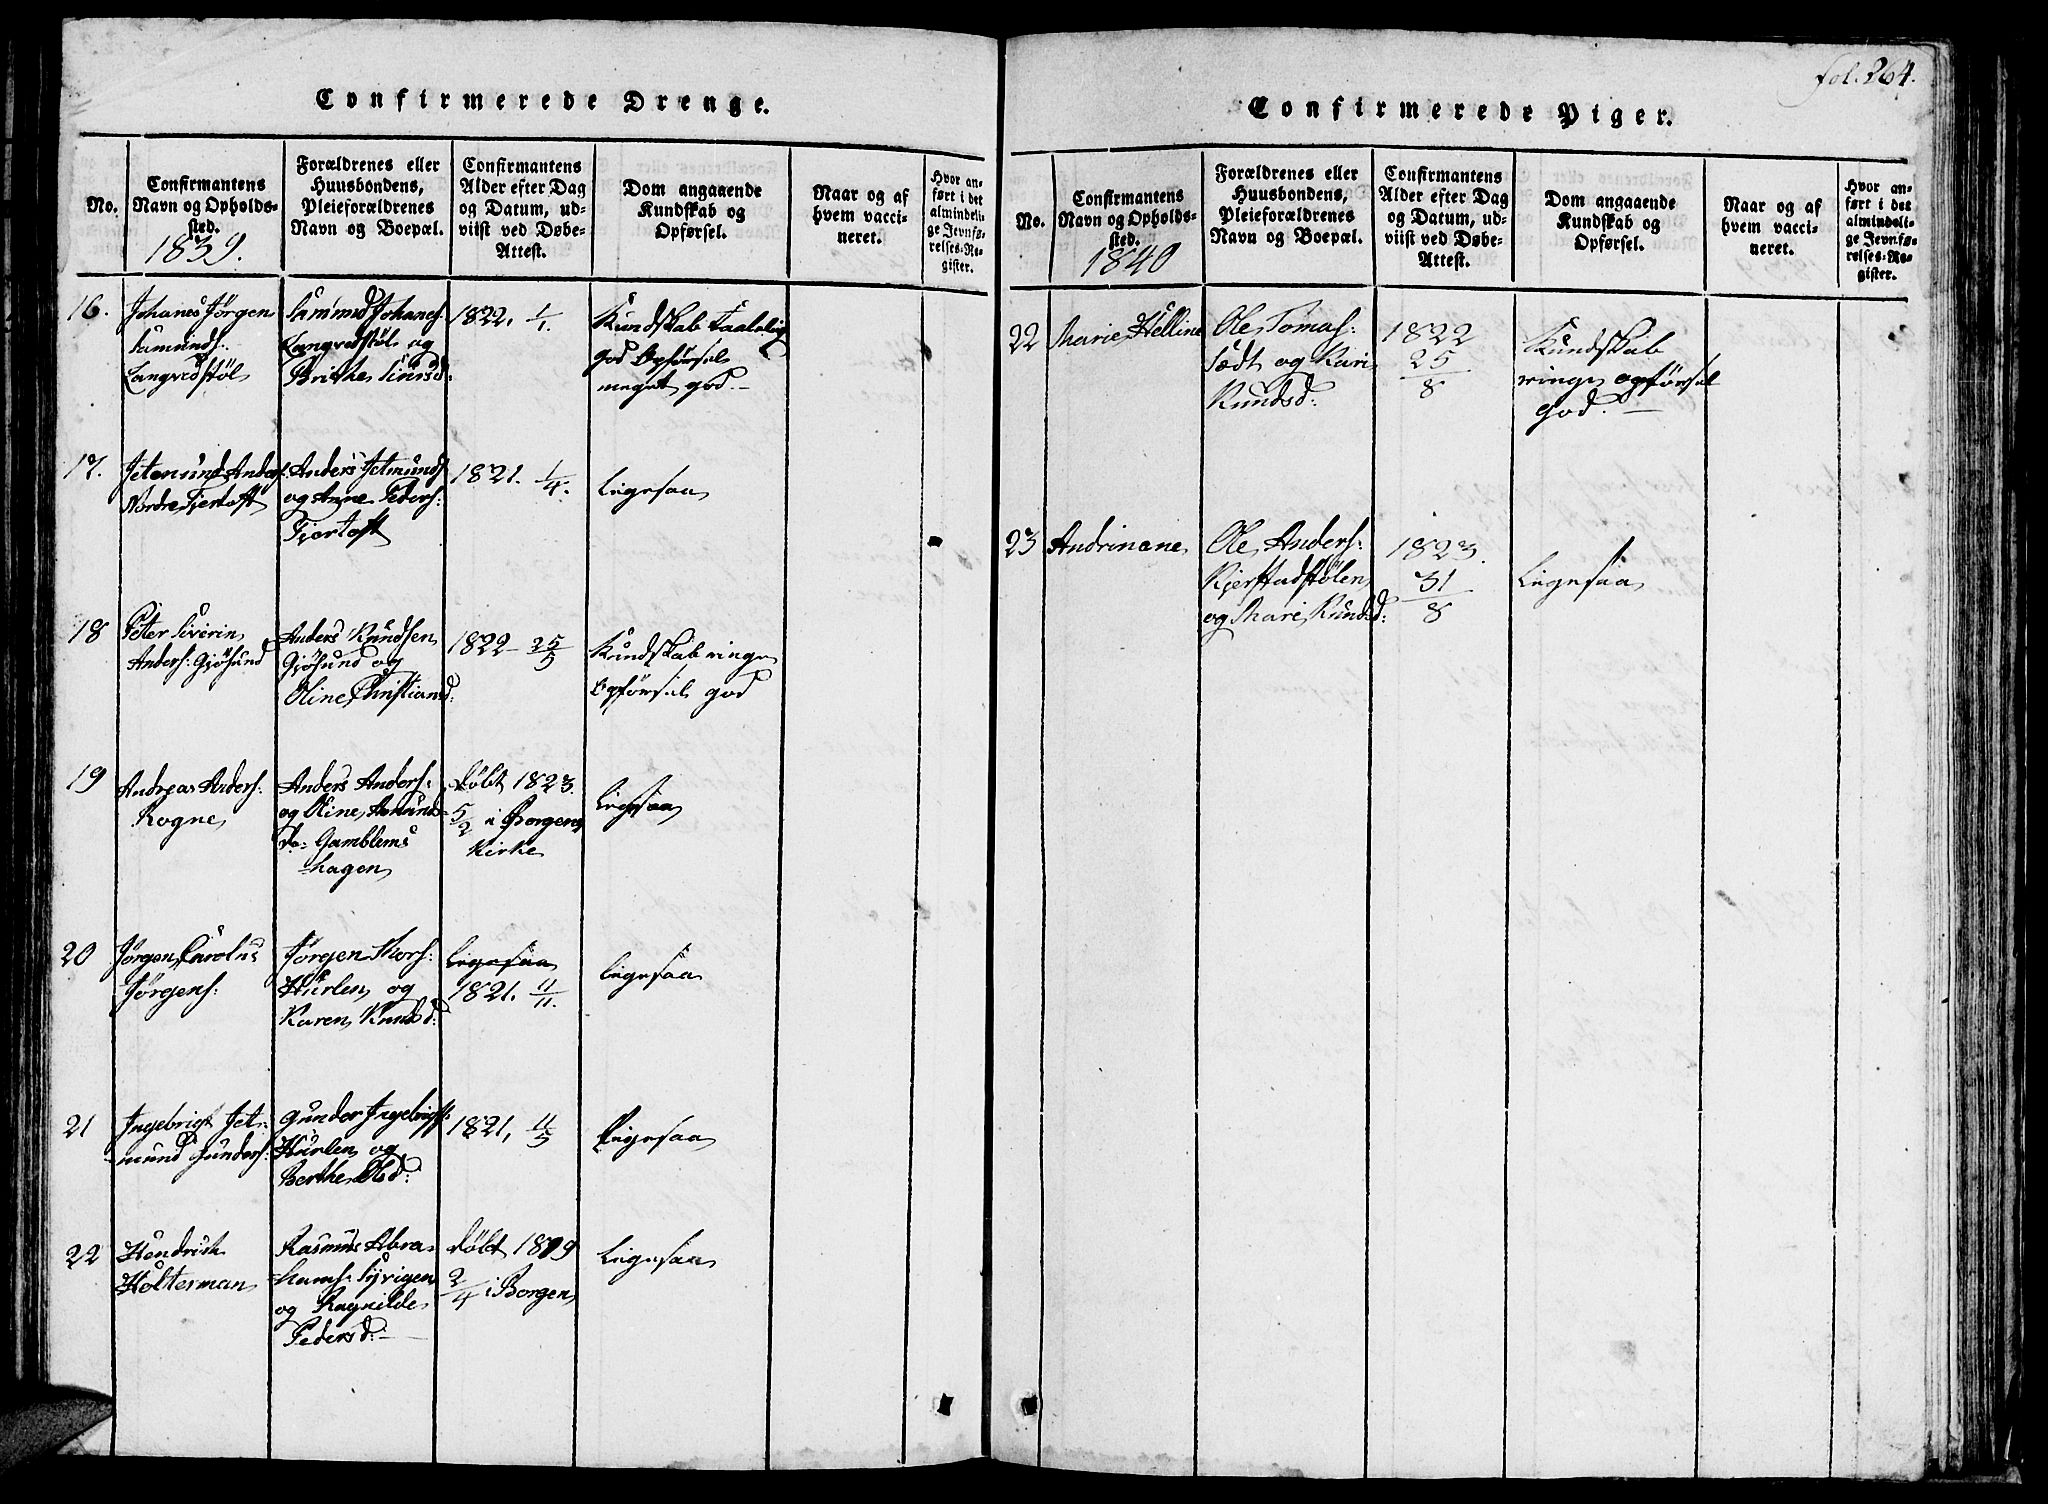 Confirmerede Drenge.
No.
Confirmantens
Navn og Opholds-
sted.
1839.
Forældrenes eller
Huusbondens,
Pleieforældrenes
Navn og Boepæl.
Confirmantens
Alder efter Dag
og Datum, ud-
viist ved Døbe-
Attest.
Dom angaaende
Kundskab og
Opførsel.
Naar og af
hvem vacci-
neret.
Hvor an-
ført i det
almindeli-
ge Jevnfø-
relses-Re-
gister.
16.
Johanes Jörgen
Samunds:
Langvedstöl
Johanes:
Langvedstöl og
Brithe Siversd:
1822. 1/1.
Kundskab taalelig
god Opförsel
meget god.-
17.
Anders:
Nordre Fjertoft
Anders Jetmunds:
og Anne Peders:
Fjertoft
1821. 1/4.
Ligesaa
18
Peter Siverin
Anders: Gjösund
Anders Knudsen
Gjösund og
Oline Christiansd:
1822- 25/5
Kundskab ringe
Opförsel god
19
Andreas Anders:
Rogne
Anders Anders:
og Oline Amund
do: Gamblems
hagen
Döbt 1823.
5/2 i Borgens
Kirke
Ligesaa
20
Jörgen Carolus
Jörgens:
Jörgen Thors:
Hurlen og
Karen Knudsd:
Ligesaa
1821. 11/11.
Ligesaa
21
Ingebrigt Jet-
mund Gunders:
Gunder Ingebrigts:
Hurlen og
Berthe Olsd:
1821, 11/5
Ligesaa
22
Hendrich
Holterman
Rasmus Abra-
hams: Syvigen
og Ragnilde
Pedersd:-
Döbt 1819
2/4 i Borgen
Ligesaa
fol. 264.
Confirmerede Piger.
No.
Confirmantens
Navn og Opholds-
sted.
1840
Forældrenes eller
Huusbondens,
Pleieforældrenes
Navn og Boepæl.
Confirmantens
Alder efter Dag
og Datum, ud-
viist ved Døbe-
Attest.
Dom angaaende
Kundskab og
Opførsel.
Naar og af
hvem vacci-
neret.
Hvor an-
ført i det
almindeli-
ge Jevnfø-
relses-Re-
gister.
22
Marie Helline
Ole Tomas:
og Kari
Knudsd:
1822
25/8
Kundskab
ringe opförsel
god.-
23
Andrinane
Ole Anders:
Kjerstadstölen
og Mari Knudsd:
1823.
31/8
Ligesaa